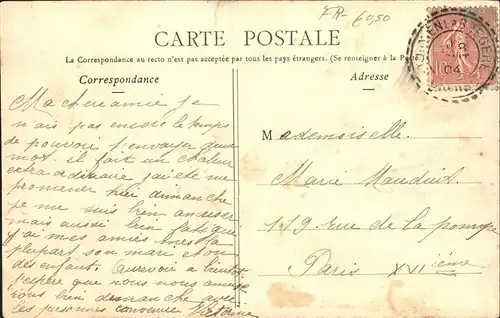 FR- 60,50
CARTE POSTALE
La Correspondance au recto n'est pas acceptée par tous les pays étrangers. (Se renseigner à la Poste)
Correspondance
Adresse
04
Ma chere amie je
n'ais pas encore le temps
de pouvoir t'envoyer
mot il fait un chaleur
extra ordinaire j'ai été me
promener hier dimanche
je me suis bien amuser
mais aussi bien
j'ai mes amies
plupart son mari et son
des enfant. Aurevoir a bientot
j'espère que nous nous
tous bien demanche avec
les personnes
Mademoiselle.
Marie Mauduit
119 rue de la pompe
Paris XVI ième